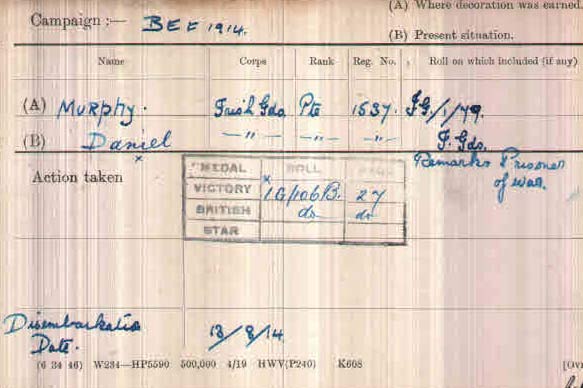 (A) Where decoration was earned.
Campaign :— BEF 1914.
(B) Present situation.
Name Corps Rank Reg. No. Roll on which included (if any)
(A) Murphy. Irish Gds. Pte 1537. I.G./1/79.
(B) Daniel —〃— —〃— —〃— I. Gds.
x
Remarks Prisoner
of war.
Action taken
MEDAL ROLL
x
VICTORY IG/106B. 27
BRITISH do do
STAR
Disembarkation
Date. 13/8/14
(6 34 46) W234—HP5590 500,000 4/19 HWV(P240) K608